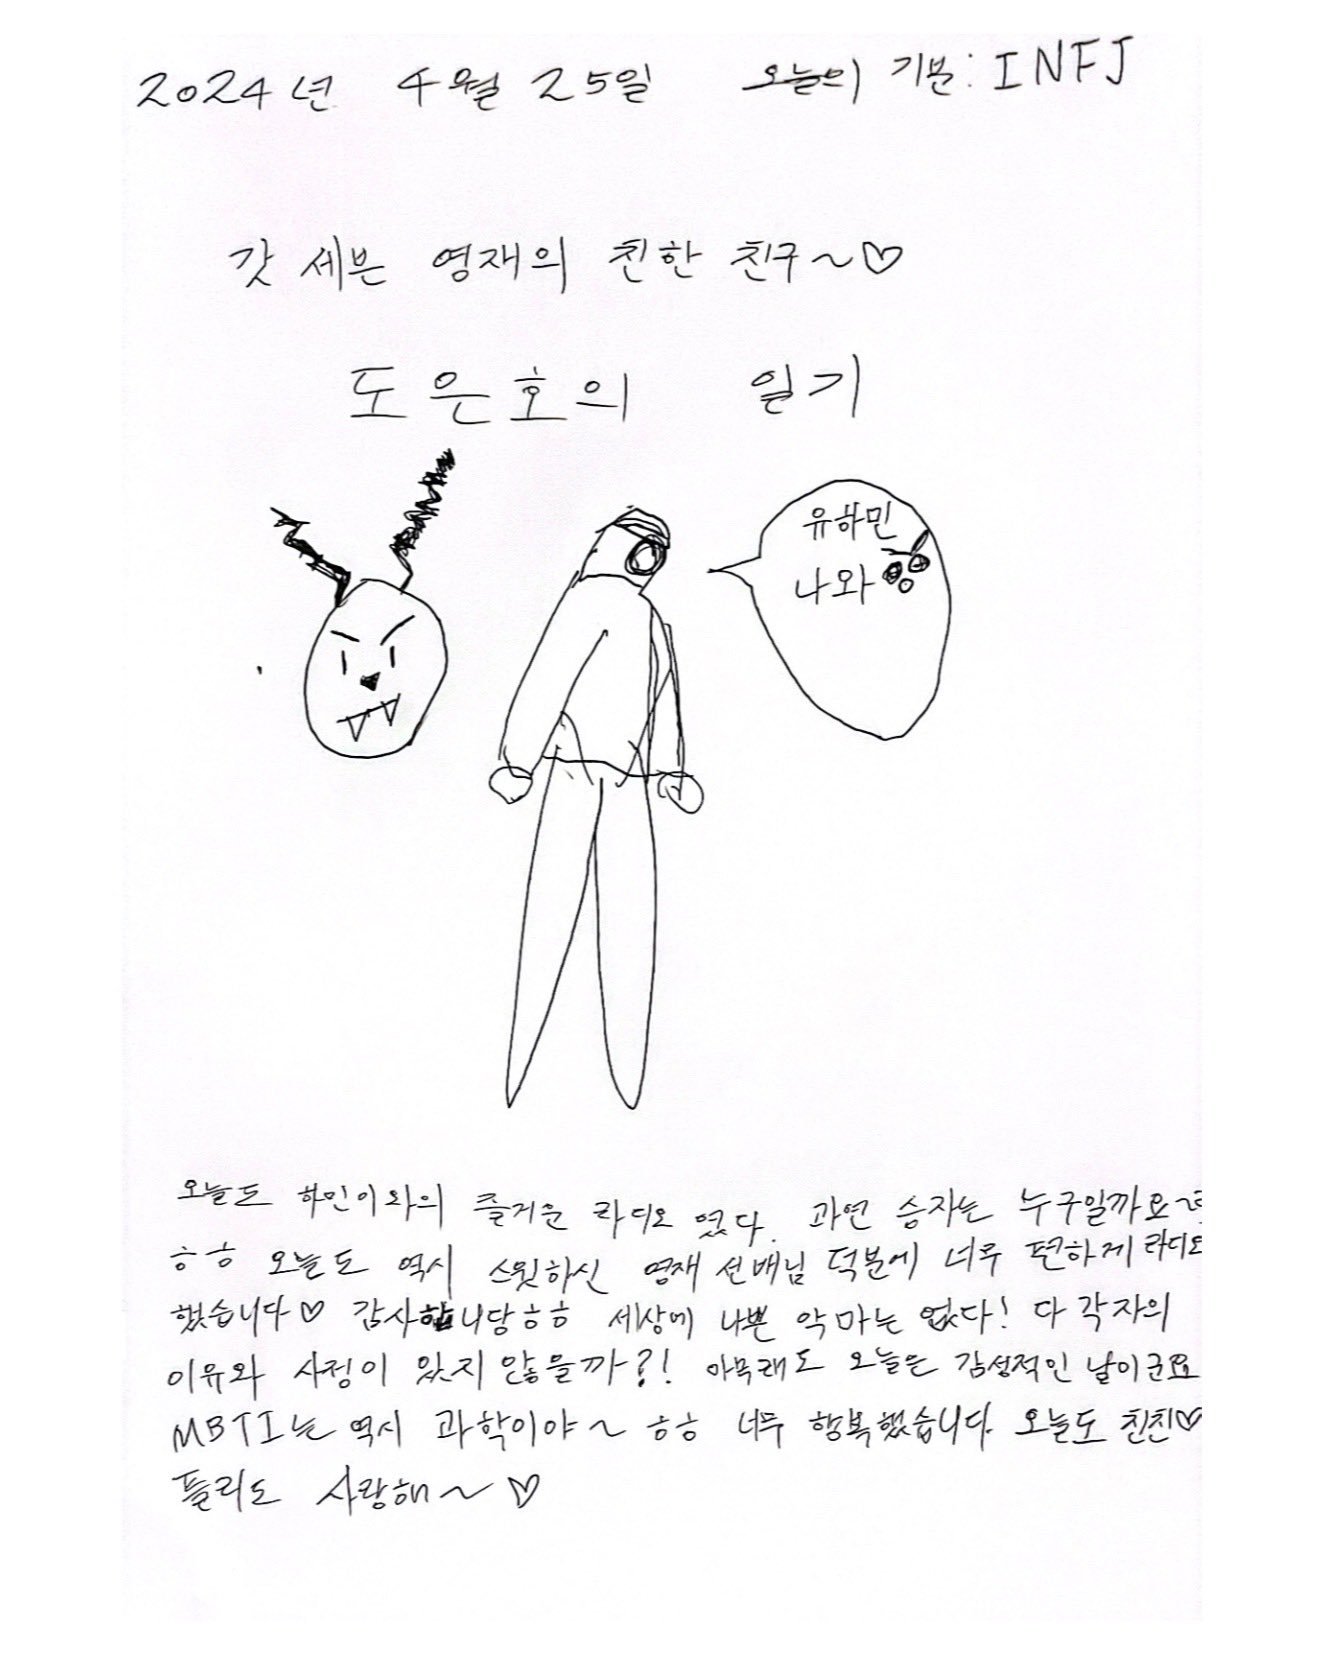 2024년 4월 25일 오늘의 기분: INFJ
갓 세븐 영재의 친한 친구~♡
도은호의 일기
유하민
나와
오늘도 하민이와의 즐거운 라디오 였다. 과연 승자는 누구일까요~
ㅎㅎ 오늘도 역시 스윗하신 영재 선배님 덕분에 너무 편하게 라디오
했습니다♡ 감사합니당ㅎㅎ 세상에 나쁜 악마는 없다! 다 각자의
이유와 사정이 있지 않을까?! 아무래도 오늘은 감성적인 날이군요
MBTI는 역시 과학이야~ㅎㅎ 너무 행복했습니다. 오늘도 친친♡
플리도 사랑해~♡